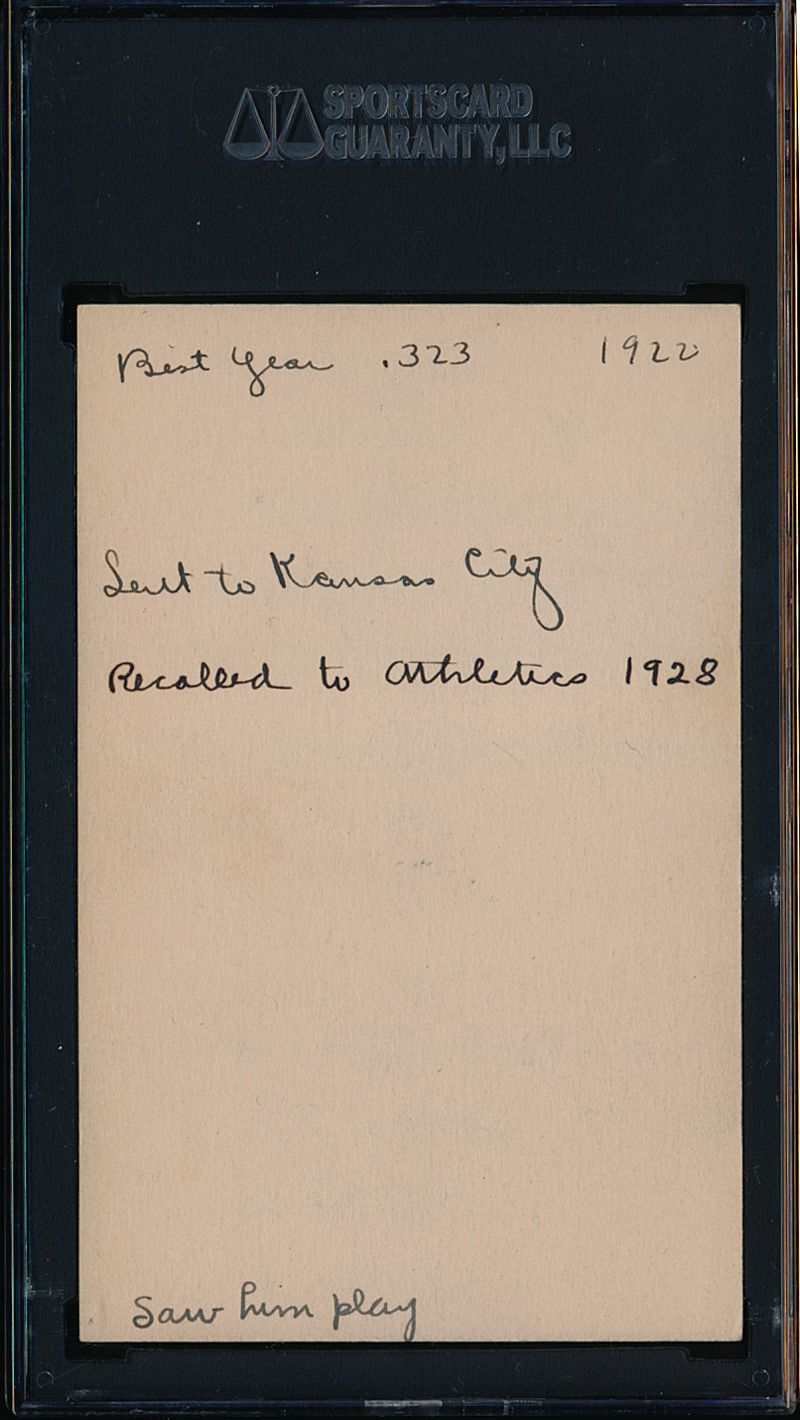 SPORTSCARD
GUARANTY, LLC
Best Year .323 1922
Sent to Kansas City
Recalled to Athletics 1928
Saw him play